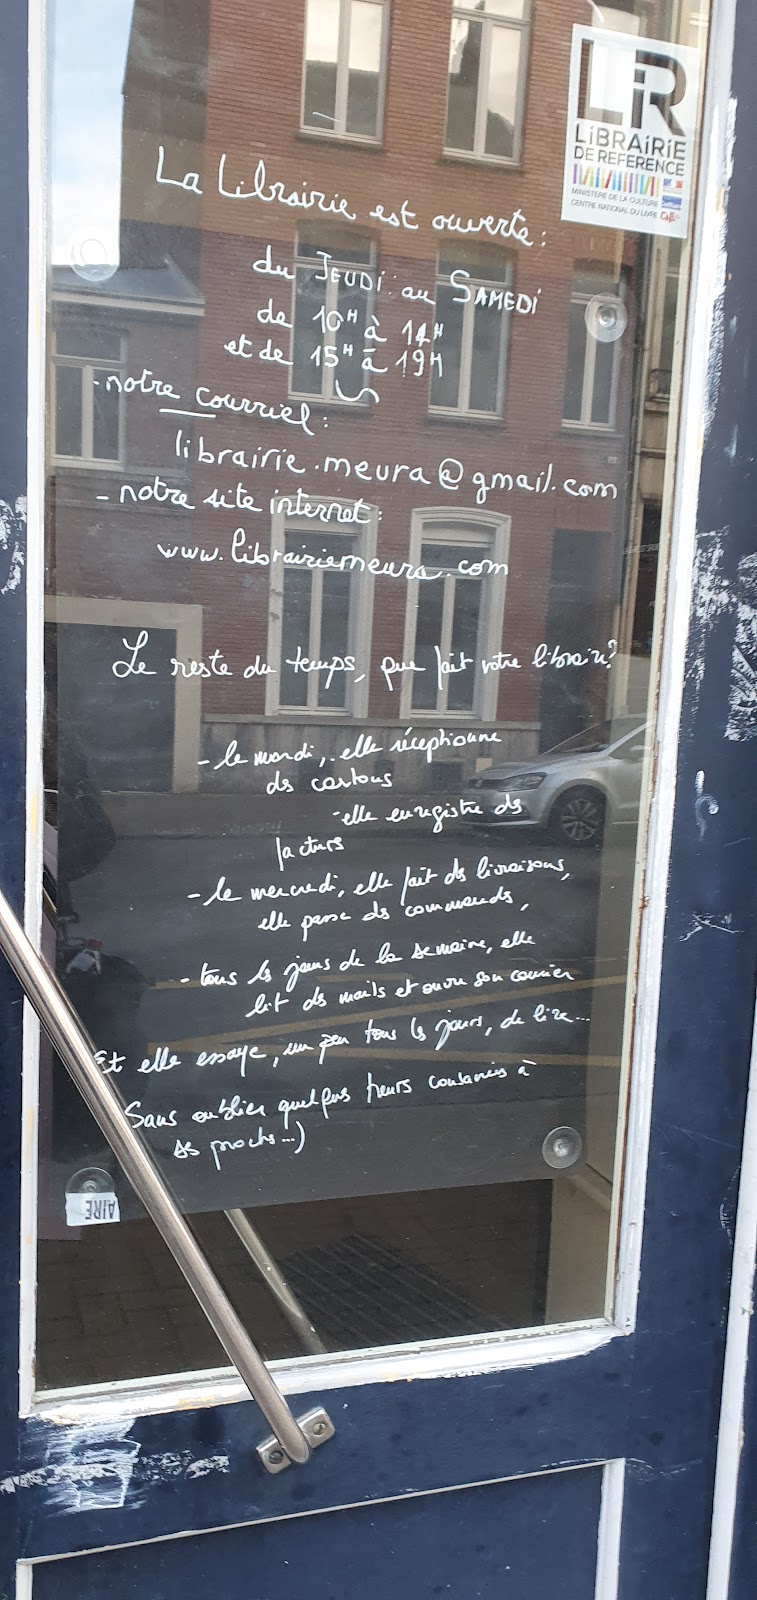 LiR
LiBRAiRiE
DE REFERENCE
MINISTERE DE LA CULTURE
CENTRE NATIONAL DU LIVRE
La Librairie est ouverte :
du JEUDI au SAMEDI
de 10H à 14H
et de 15H à 19H
- notre courriel :
librairie.meura@gmail.com
- notre site internet :
www.librairiemeura.com
Le reste du temps, que fait votre libraire?
- le mardi, elle réceptionne
des cartons
- elle enregistre des
factures
- le mercredi, elle fait des livraisons,
elle passe des commandes,
- tous les jours de la semaine, elle
lit des mails et ouvre son courrier
Et elle essaye, un peu tous les jours, de lire...
Sans oublier quelques heures consacrées à
ses proches...)
AIRE